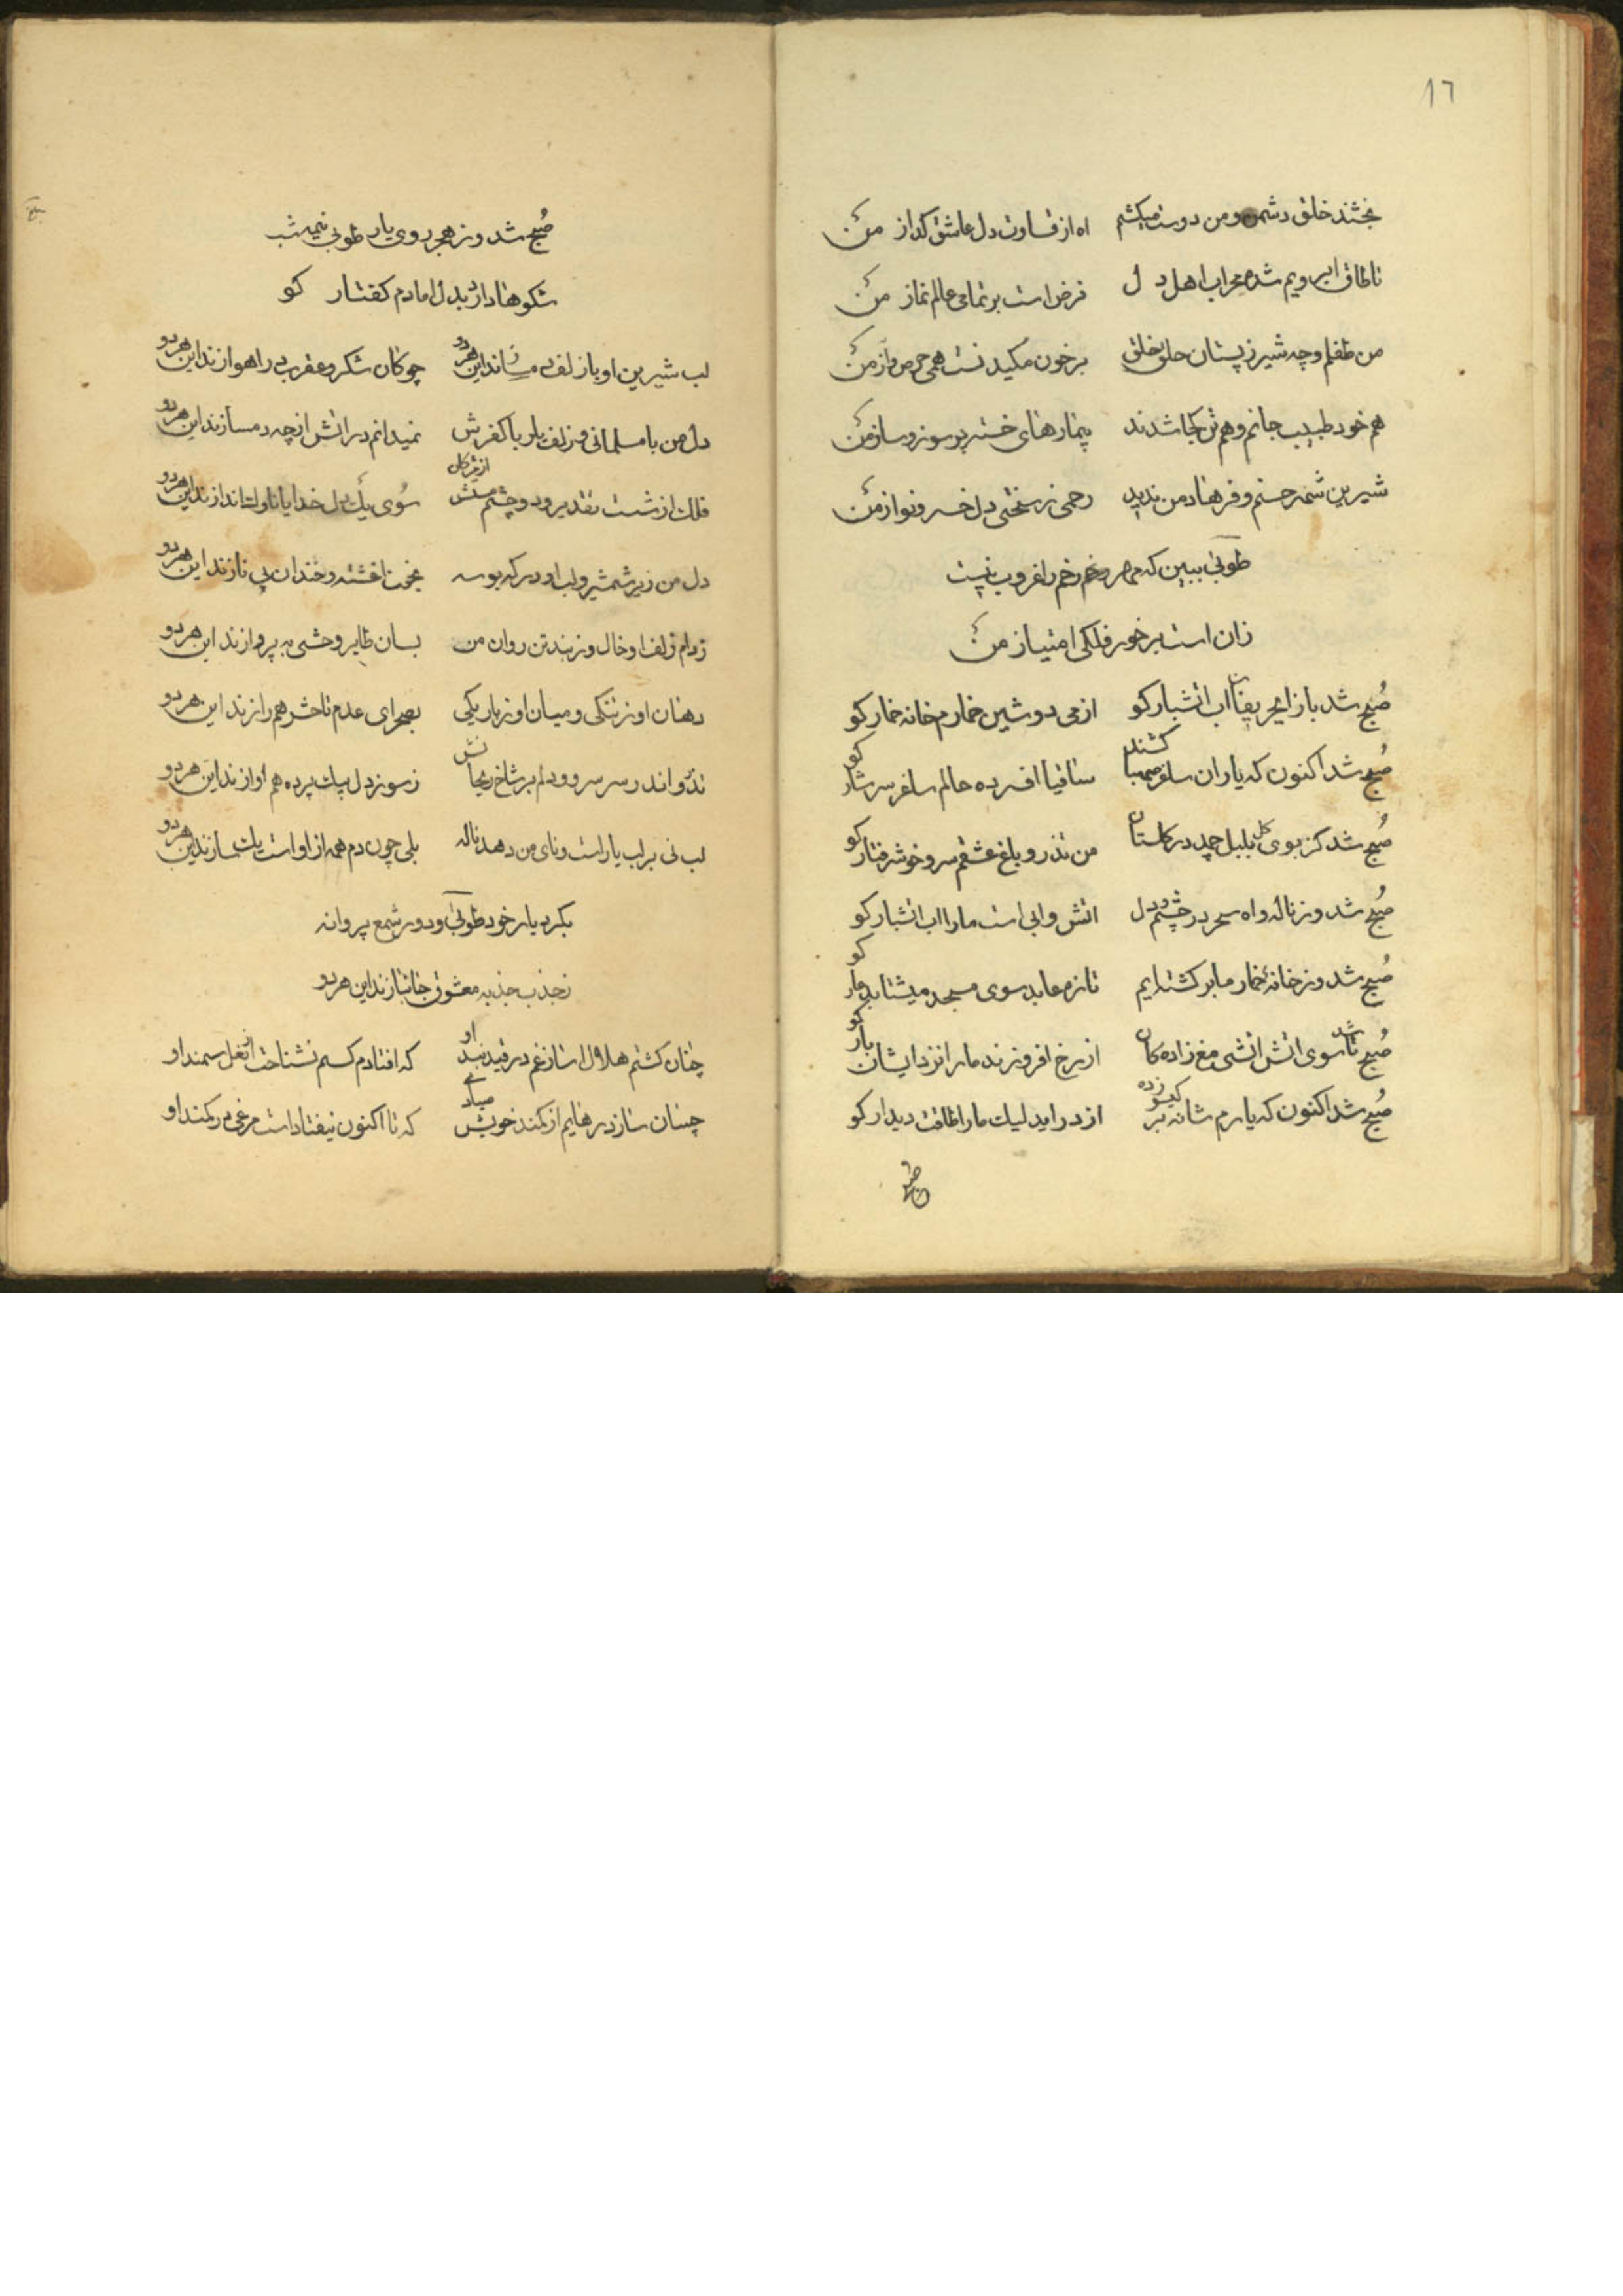 ١٦
بخشند خلق دشمن و من دوست میکشم اه از قساوت دل عاشق کداز من
تا طاق ابرویم شده محراب اهل دل فرض است بر تمامی عالم نماز من
من طفلم و چه شیر ز پستان خلق بر خون مکیدنست همی حرص و از من
هم خود طبیب جانم و هم بیمارهای خسته پر سوز و ساز من
شیرین شمه حسنم و فرهاد من ندید رحمی ز سختی دل خسرو نواز من
طوبی ببین که مهر رخم را غروب نیست
زان است بر خور فلکی امتیاز من
صبح شد باز ای حریفان اب اتشبار کو از می دوشین خمارم خانه خمار کو
صبح شد اکنون که یاران ساغر صهبا کشند ساقیا افسرده حالم ساغر سرشار کو
صبح شد کز بوی کل بلبل چمد در کلستان من تذرو باغ عشقم سرو خوش رفتار کو
صبح شد وز ناله و اه سحر در چشم و دل اتش و ابی است ما را اب اتشبار کو
صبح شد وز خانه خمار ما بر کشته‌ایم تا زه عابد سوی مسجد میشتابد یار کو
صبح شد تا سوی اتش اتشی مغ زاده کان از رخ افروزند ما را نزد ایشان بار کو
صبح شد اکنون که یارم شانه بر کیسو زده از در اید لیک ما را طاقت دیدار کو
صبح شد وز هجر روی یار طوبی نیمه شب
شکوها دارد بدل اما دم کفتار کو
لب شیرین او با زلف این هر دو چو کان شکر و عقرب اهوازند این هر دو
دل من با مسلمانی و زلف یار با کفرش نمیدانم در اتش از چه دمسازند این هر دو
فلک از شست تقدیر و دو چشم مستش از مژکان سوی یک دل خدایا ناوک اندازند این هر دو
دل من زیر شمشیر و لب او در که بوسه بخون اغشته و خندان پی نازند این هر دو
ز دام زلف او خال و ز بند تن روان من بسان طایر وحشی به پروازند این هر دو
دهان او ز تنکی و میان او ز باریکی بصحرای عدم تا حشر همرازند این هر دو
تذرو اندر سر سرو و دلم بر شاخ ریحانش ز سوز دل بیک پرده هم اوازند این هر دو
لب نی بر لب یار است و نای من دهد ناله بلی چون دم همه از او است یک سازند این هر دو
بکرد یار خود طوبی و دور شمع پروانه
ز جذب جذبه معشوق جانبازند این هر دو
چنان کشتم هلال اسا ز غم در قید بند او که افتادم کسم نشناخت از نعل سمند او
چسان سازد رهایم از کمند خویش صیادی که تا اکنون نیفتاداست مرغی در کمند او